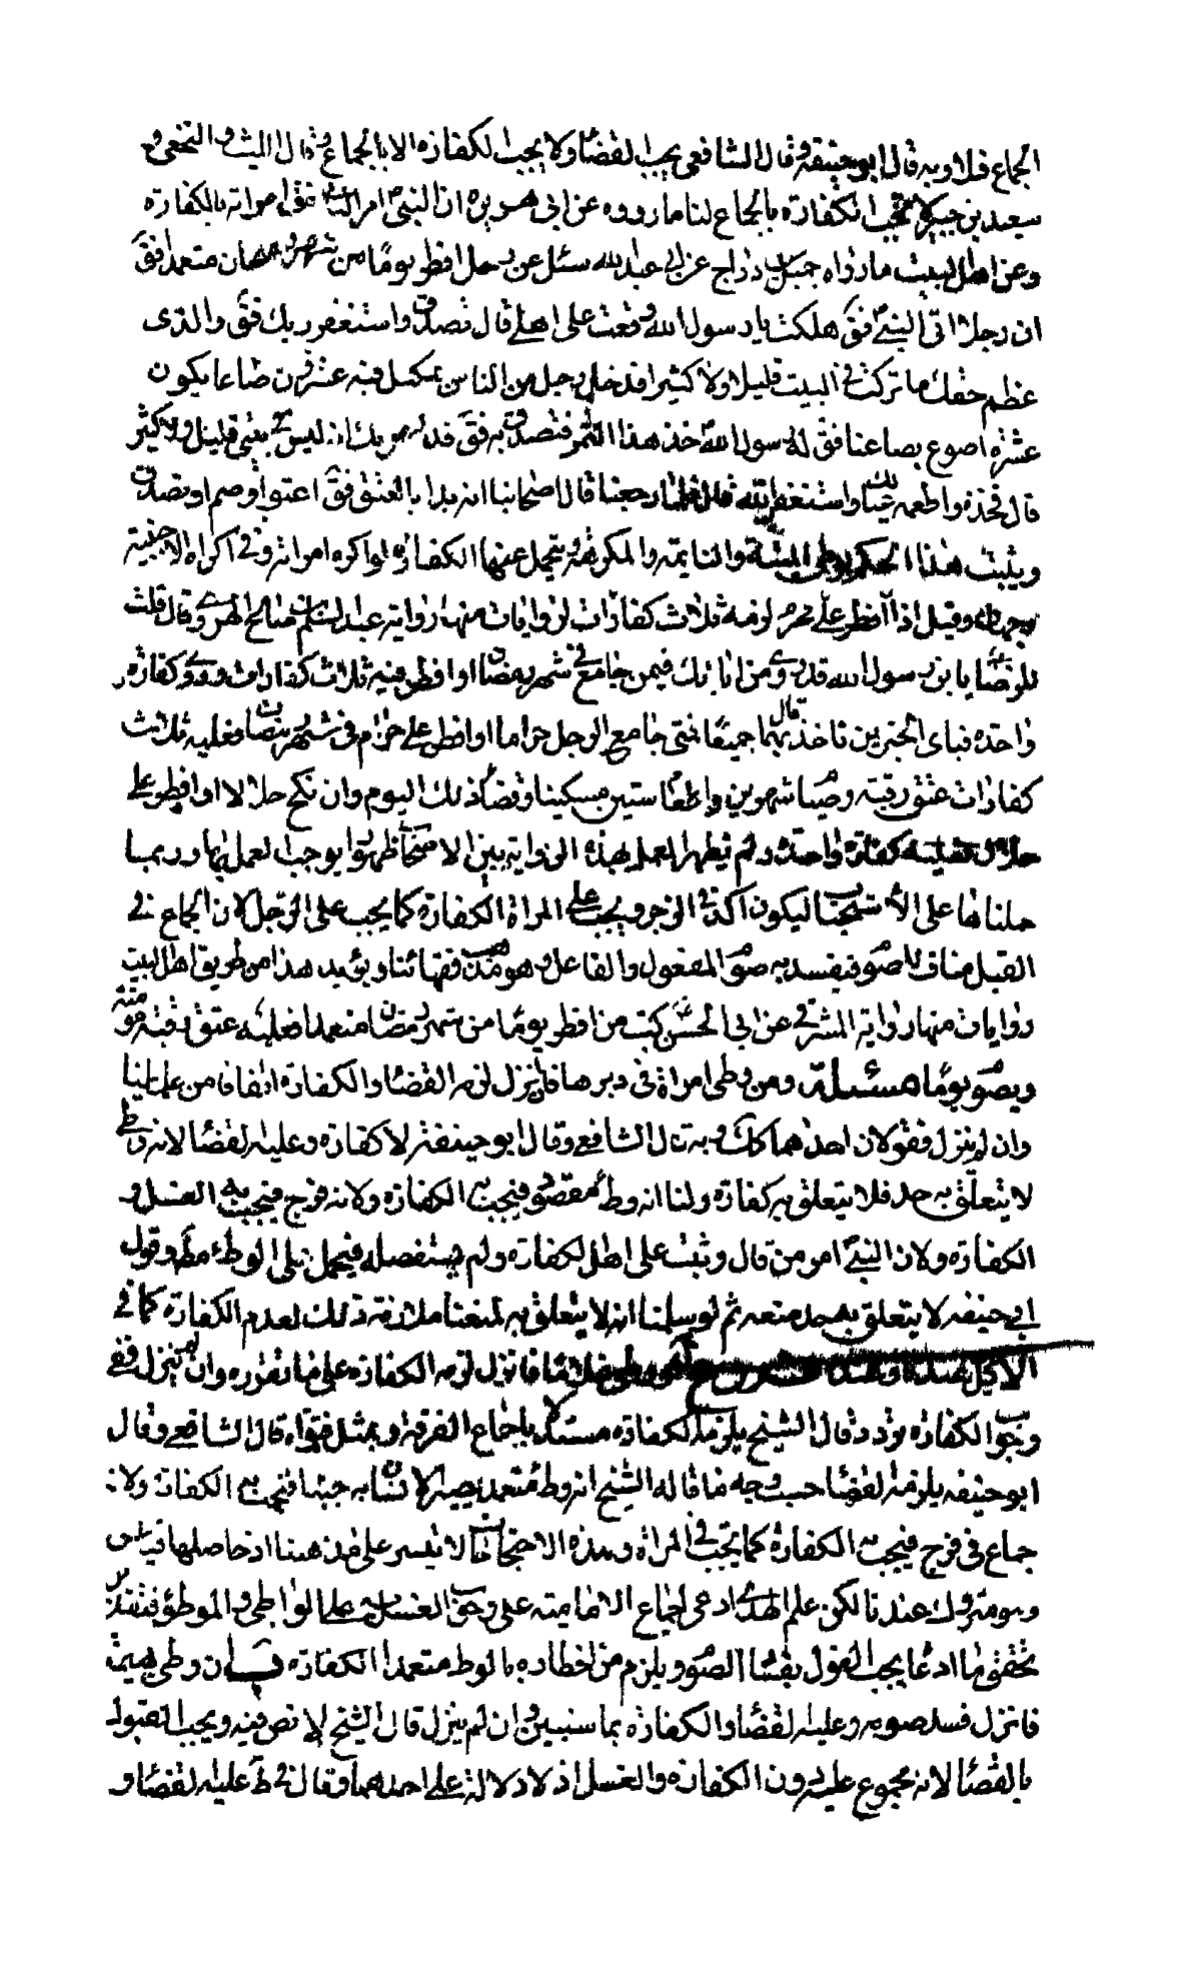 الجماع فلا وبه قال ابوحنيفة وقال الشافعي يجب القضا ولا يجب الكفارة الا بالجماع وقال الليث والنخعي و
سعيد بن جبير لا تجب الكفارة بالجماع لنا ما رووه عن ابي هريرة ان النبي ص امر الذي وقع امراته بالكفارة
وعن اهل البيت ما رواه جميل بن دراج عن ابي عبدالله سئل عن رجل افطر يوما من شهر رمضان متعمدا فق
ان رجلا اتى النبي ص فق هلكت يا رسول الله وقعت على اهلي قال تصدق واستغفر ربك فق والذى
عظم حقك ما تركت في البيت قليلا ولا كثيرا فدخل رجل من الناس بمكتل فيه عشرون صاعا يكون
عشرة اصوع بصاعنا فق له رسول الله خذ هذا التمر فتصدق به فق ليس في بيتي قليل ولا كثير
قال فخذه واطعمه عيالك واستغفر الله قال فلما رجعنا قال اصحابنا انه بدا بالعتق فق اعتق او صم او تصدق
ويثبت هذا الحكم بوطى الميتة والنايمة والمكرهة ويتحمل عنها الكفارة لو اكره امراته وفى اكراه الاجنبية
وجهان وقيل اذا افطر على محرم لزمه ثلاث كفارات لروايات منها رواية عبدالسلم بن صالح الهروي وقال قلت
للرضا يا بن رسول الله قد روى من ابائك فيمن جامع في شهر رمضان او افطر فيه ثلاث كفارات وروى كفارة
واحدة فباى الخبرين ناخذ قال بهما جميعا متى جامع الرجل حراما او افطر على حرام فى شهر رمضان فعليه ثلاث
كفارات عتق رقبة وصيا شهرين واطعا ستين مسكينا وقضا ذلك اليوم وان نكح حلالا او افطر على
حلال فعليه كفارة واحدة ولم يظهر العمل بهذه الرواية بين الاصحاب ظهورا يوجب العمل بها وربما
حملناها على الاستحباب ليكون اكد في الزجر ويجب على المراة الكفارة كما يجب على الرجل لان الجماع في
القبل مناف للصو فيفسد به صو المفعول والفاعل وهو مذهب فقهائنا ويؤيد هذا من طريق اهل البيت
روايات منها رواية المشرقي عن ابي الحسن كتب من افطر يوما من شهر رمضان متعمدا فعليه عتق رقبة مؤمنة
ويصو يوما مسئلة ومن وطى امراة فى دبرها فانزل لزمه القضا والكفارة اتفاقا من علمائنا
وان لم ينزل فقولان احدهما كك وبه قال الشافعي وقال ابوحنيفة لا كفارة وعليه القضا لانه وطى
لا يتعلق به حد فلا يتعلق به كفارة ولنا انه وطئ مقصود فيجب به الكفارة ولانه فرج فيجب به الغسل و
الكفارة ولان النبي ص امر من قال وثبت على اهلي الكفارة ولم يستفصله فيحمل على الوطئ مطلقا وقول
ابي حنيفه لا يتعلق به حد متعه ثم لو سلمنا انه لا يتعلق به لمنعنا ملازمة ذلك لعدم الكفارة كما في
الاكل غلاما فانزل لزمه الكفارة على ما نقرره وان لم ينزل ففى
وجوب الكفارة تردد قال الشيخ يلزمه الكفارة مستدلا باجماع الفرقة وبمثل فتواه قال الشافعي وقال
ابوحنيفه يلزمه القضا حسب وجه ما قاله الشيخ انه وطئ متعمد يصير الانسان به جنبا فتجب به الكفارة ولانه
جماع فى فرج فيجب به الكفارة كما تجب في المراة وهذه الاحتجاجات لا تيسر على مذهبنا اذ حاصلها قياس
وهو متروك عندنا لكن علم الهدى ادعى اجماع الامامية على وجوب الغسل على الواطى والموطؤ فبتقدير
تحقق ما ادعا يجب القول بفسا الصو ويلزم من افطاره بالوطى متعمدا الكفارة فرع ان وطى بهيمة
فانزل فسد صومه وعليه القضا والكفارة بما سنبين وان لم ينزل قال الشيخ لا نص فيه ويجب القول
بالقضا لانه مجموع عليه دون الكفارة والغسل اذ لا دلالة على احدهما وقال في ط عليه القضا و